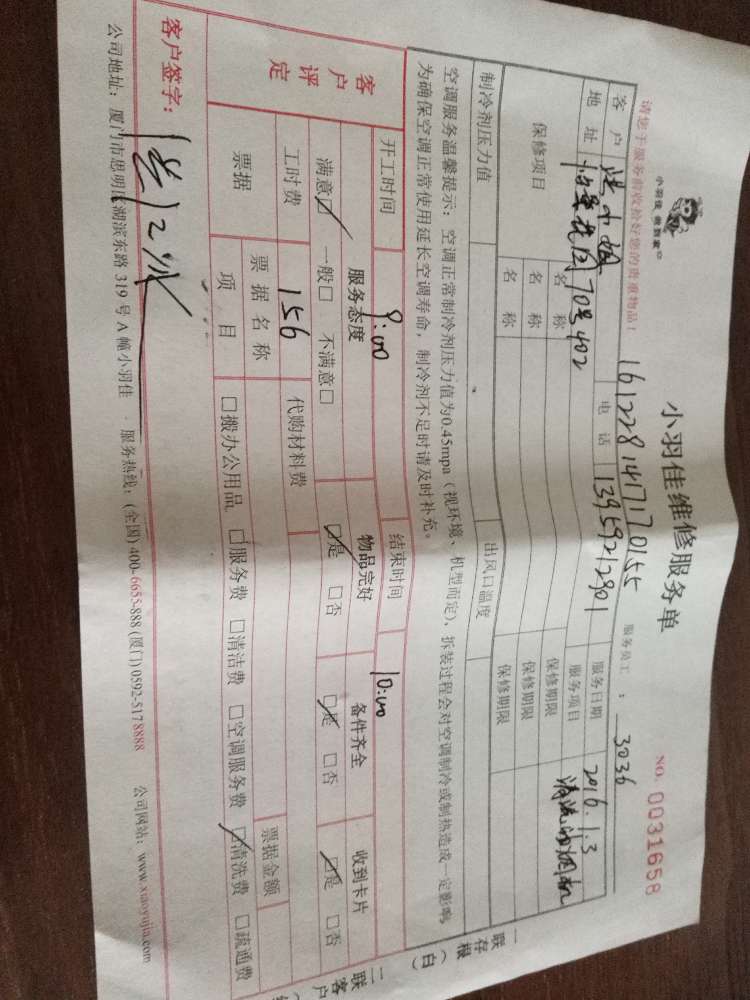 小羽佳 做到家
小羽佳维修服务单
NO. 0031658
请您于服务前收拾好您的贵重物品！
161228141717 0155
服务员工：3036
客户 洪小姐 电话 13959212901 服务日期 2016.1.3
地址 70号402 服务项目 清洗油烟机
保修项目 名称 保修期限
名称 保修期限
名称 保修期限
制冷剂压力值 出风口温度
空调服务温馨提示：空调正常制冷剂压力值为0.45mpa（视环境、机型而定），拆装过程会对空调制冷或制热造成一定影响
为确保空调正常使用延长空调寿命，制冷剂不足时请及时补充。
开工时间 9:00 结束时间 10:00
客户评定 服务态度 物品完好 备件齐全 收到卡片
满意☑ 一般□ 不满意□ ☑是 □否 ☑是 □否 ☑是 □否
工时费 156 代购材料费
票据 票据名称 票据金额
项目 □搬办公用品 □服务费 □清洁费 □空调服务费 ☑清洗费 □疏通费
客户签字：
公司地址：厦门市思明区湖滨东路319号A幢小羽佳 服务热线：(全国)400-6655-888 (厦门)0592-5178888 公司网站：www.xiaoyujia.com
一联存根（白）
二联客户